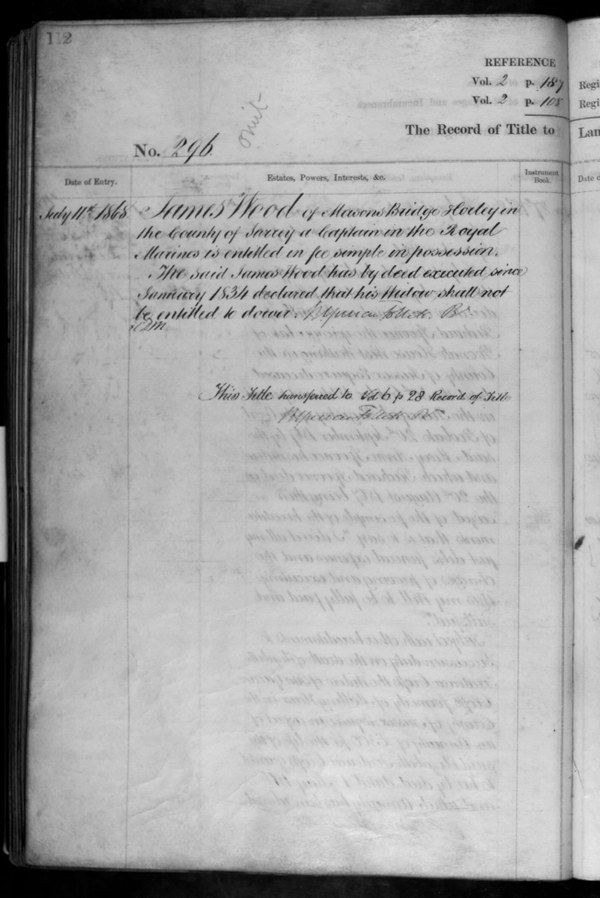 112
REFERENCE
Vol. 2 p. 187
Vol. 2 p. 108
omit
The Record of Title to
No. 296
Date of Entry.
Estates, Powers, Interests, &c.
Instrument Book.
July 11th 1868
James Wood of Masons Bridge Horley in
the County of Surrey a Captain in the Royal
Marines is entitled in fee simple in possession.
The said James Wood has by deed executed since
January 1834 declared that his Widow shall not
be entitled to dower.
This Title transferred to Vol 6 p 28 Record of Title
Regi
Regi
Lan
Date o